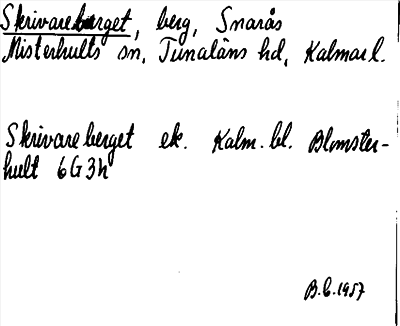 Skrivareberget, berg, Snarås
Misterhults sn, Tunaläns hd, Kalmar l.
Skrivareberget ek. Kalm. bl. Blomster-
hult 6G3h
B.C. 1957